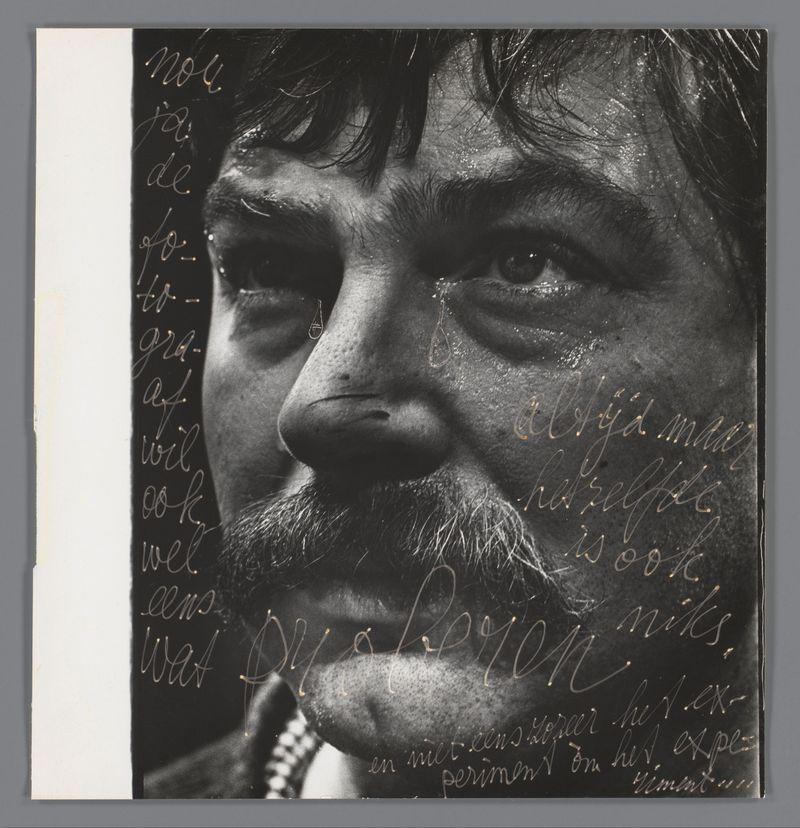 nou
ja
de
fo-
to-
gra-
af
wil
ook
wel
eens
wat
proberen
altijd maar
hetzelfde
is ook
niks,
en niet eens zozeer het ex-
periment om het expe-
riment....